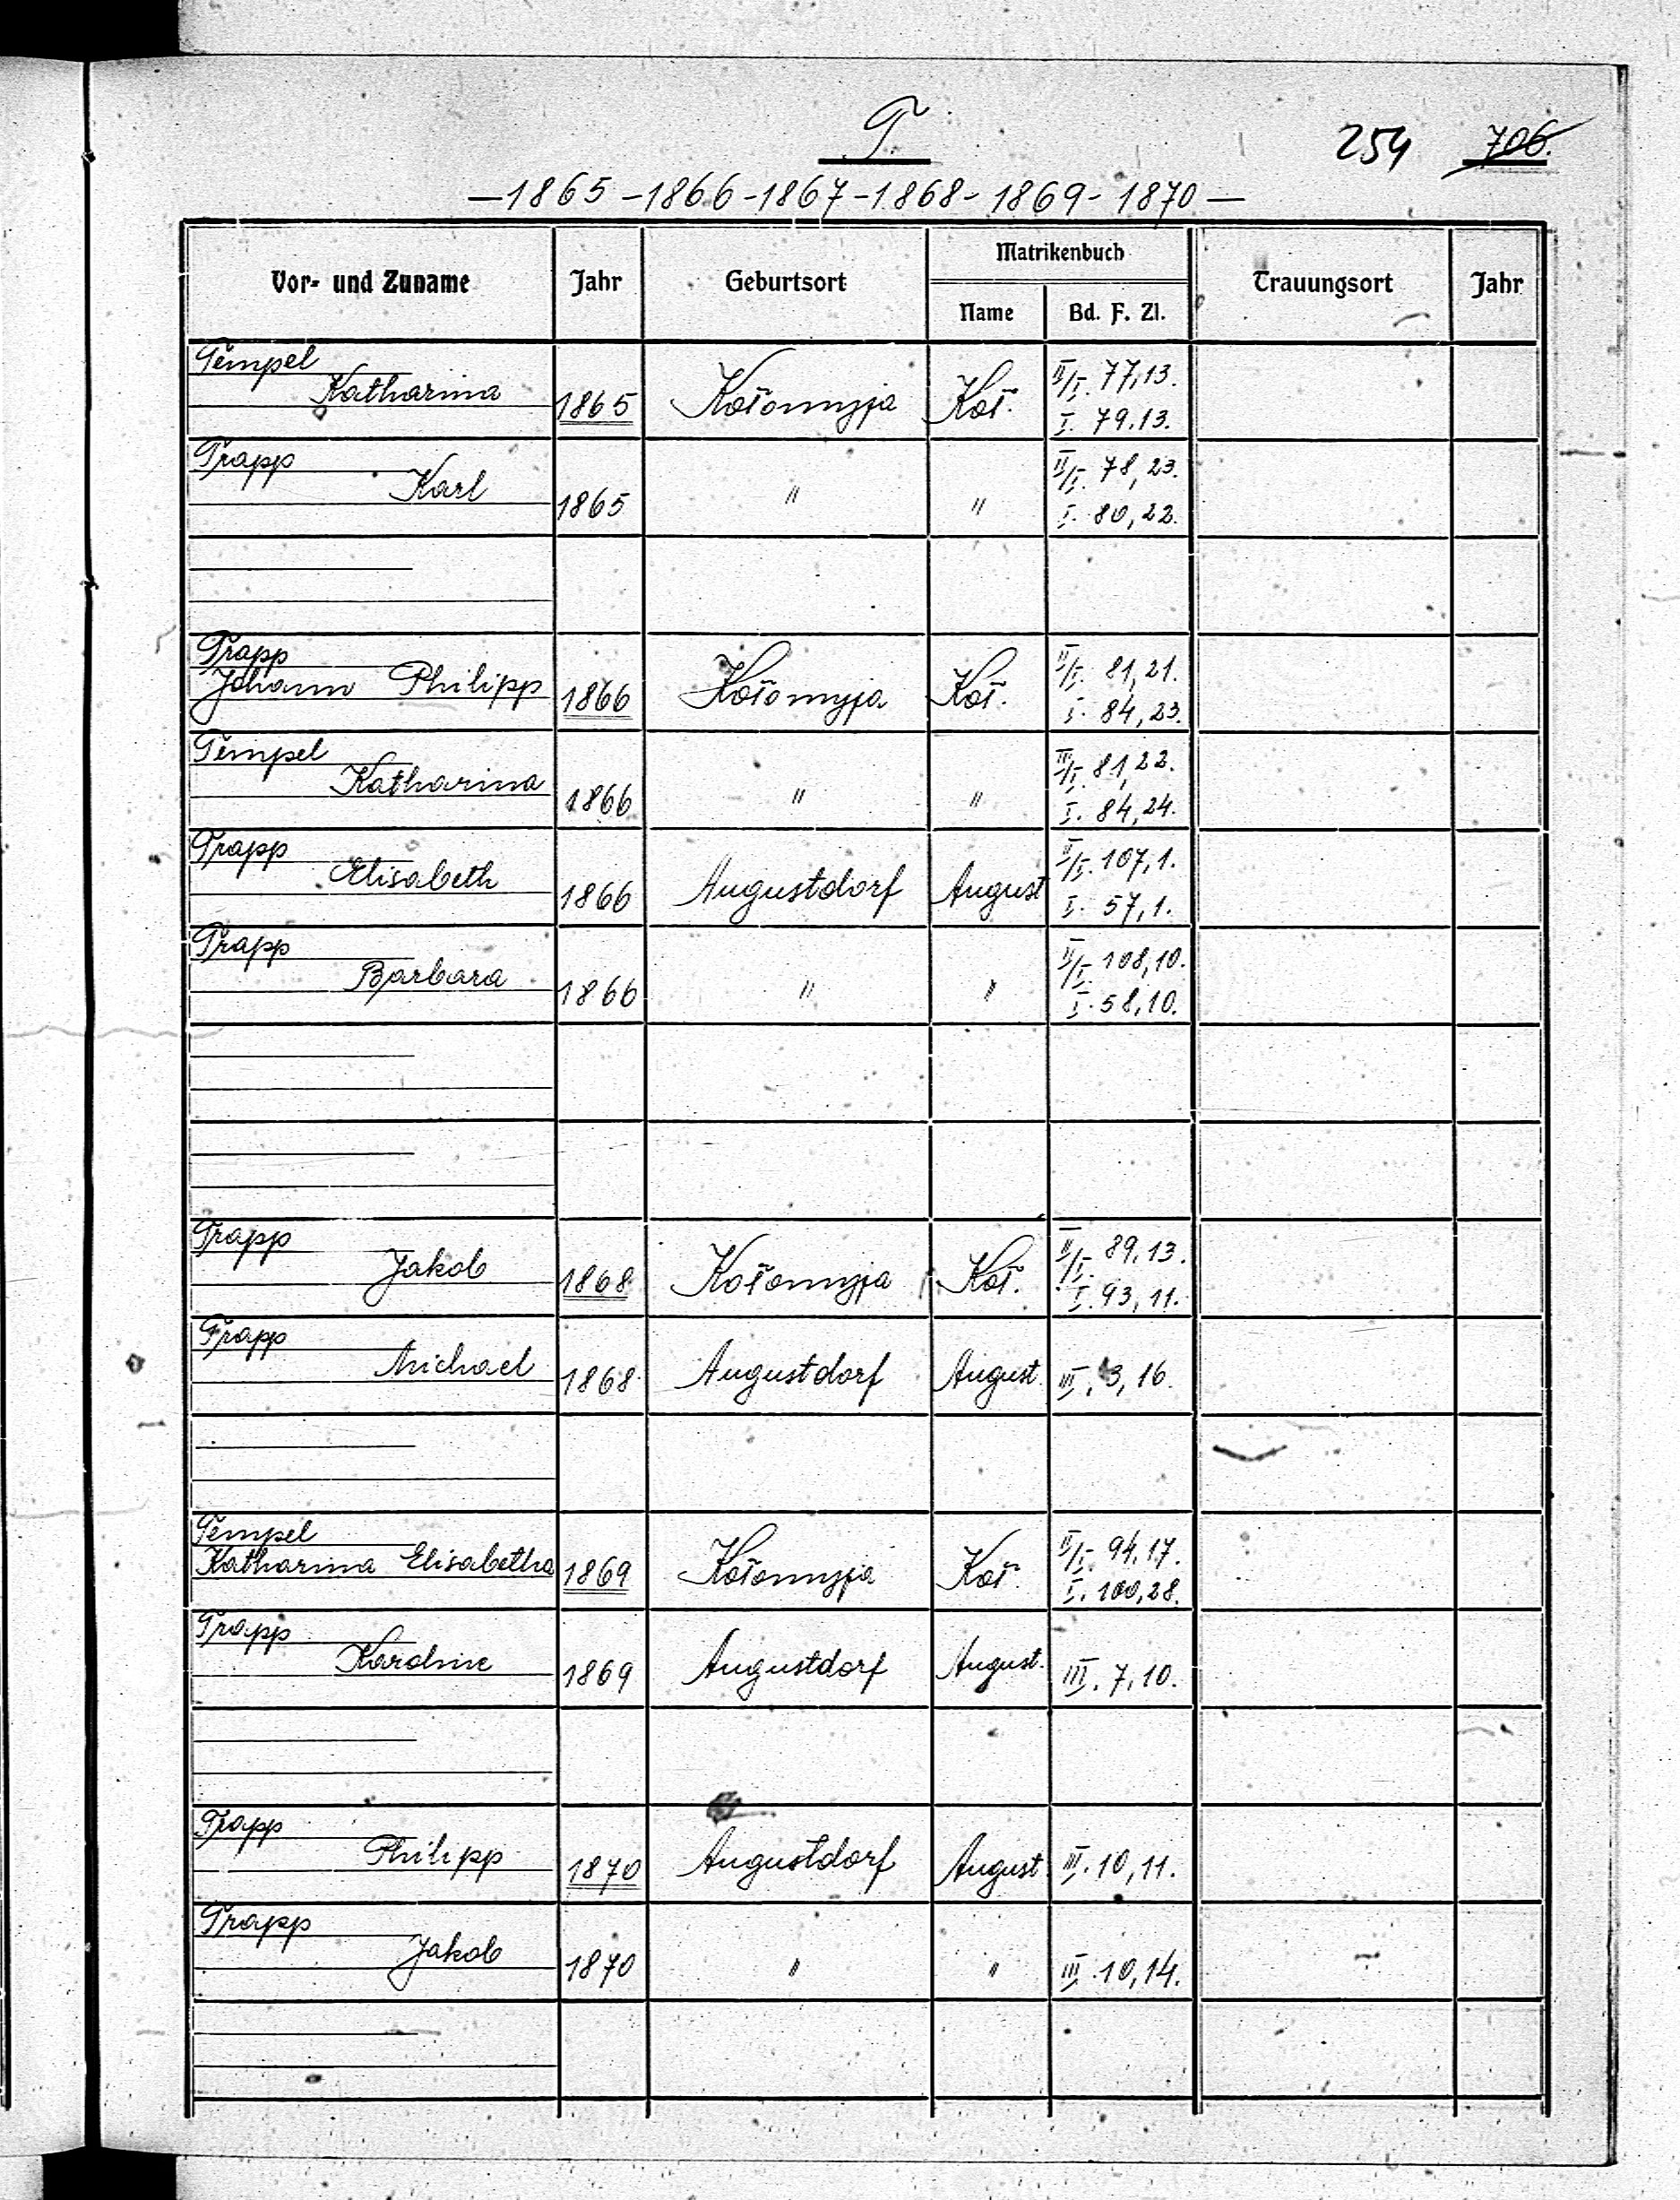 T.
254 706.
—1865-1866-1867-1868-1869-1870—
Vor- und Zuname Jahr Geburtsort Matrikenbuch Trauungsort Jahr
Name Bd. F. Zl.
Tempel
Katharina 1865 Kołomyja Koł. II/I. 77,13.
I. 79.13.
Trapp
Karl 1865 " " II/I. 78,23.
I. 80,22.
Trapp
Johann Philipp 1866 Kołomyja Koł. II/I. 81,21.
I. 84,23.
Tempel
Katharina 1866 " " II/I. 81,22.
I. 84,24.
Trapp
Elisabeth 1866 Augustdorf August II/I. 107,1.
I. 57,1.
Trapp
Barbara 1866 " " II/I. 108,10.
I. 58,10.
Trapp
Jakob 1868 Kołomyja Koł. II/I. 89,13.
I. 93,11.
Trapp
Michael 1868 Augustdorf August. III. 3,16.
Tempel
Katharina Elisabetha 1869 Kołomyja Koł. II/I. 94,17.
I. 100,28.
Trapp
Karoline 1869 Augustdorf August. III. 7,10.
Trapp
Philipp 1870 Augustdorf August. III. 10,11.
Trapp
Jakob 1870 " " III. 10,14.